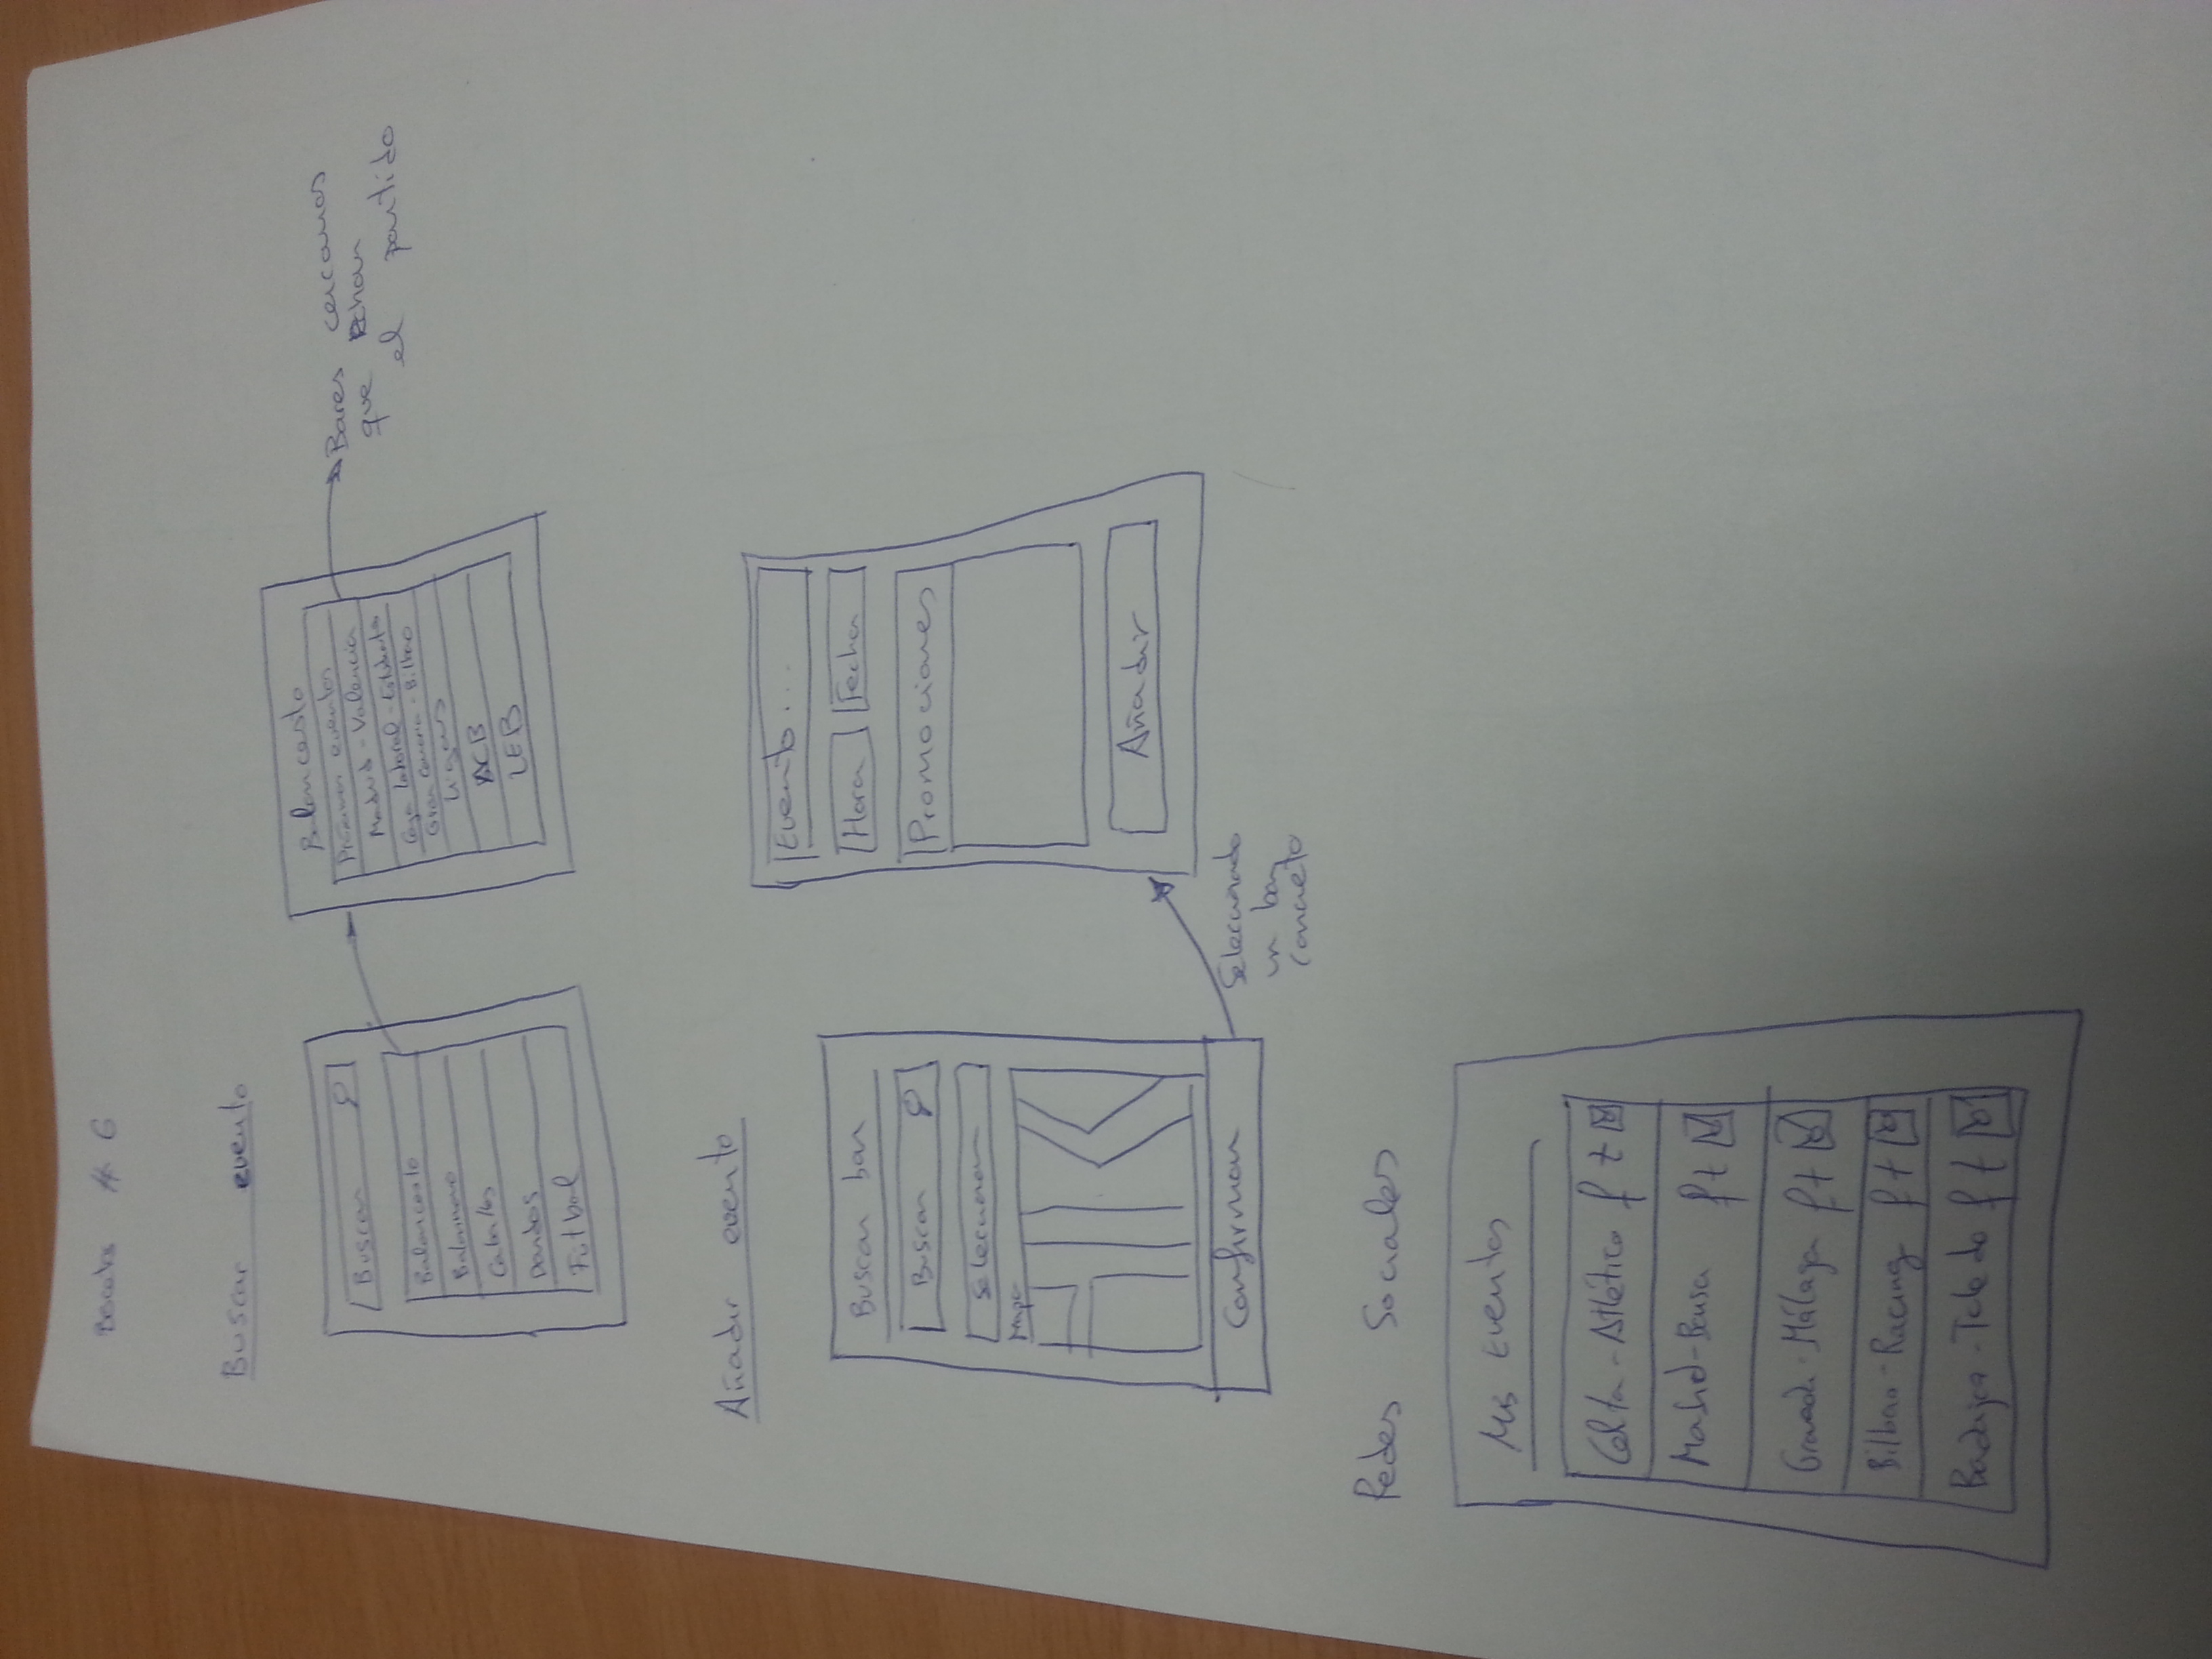 Bocetos # 6
Buscar evento
Buscar
Baloncesto
Balonmano
Caballos
Dardos
Fútbol
Baloncesto
Próximos eventos
Madrid - Valencia
Caja Laboral - Estudiantes
Gran Canaria - Bilbao
Ligas
ACB
LEB
Bares cercanos
que echan
el partido
Añadir evento
Buscar bar
Buscar
Seleccionar
Mapa
Confirmar
Seleccionado
un bar
concreto
Evento...
Hora Fecha
Promociones
Añadir
Redes Sociales
Mis Eventos
Celta - Atlético f t
Madrid - Barsa f t
Granada - Málaga f t
Bilbao - Racing f t
Badajoz - Toledo f t